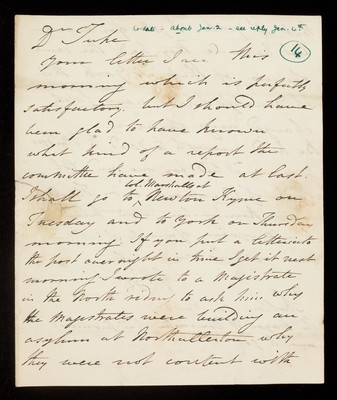 Dr Tuke
no date - about Jan. 2 - see reply Jan. 4th
14
your letter I recd this
morning which is perfectly
satisfactory but I should have
been glad to have known
what kind of a report the
committee have made at last.
I shall go to Col. Marshalls at Newton Kyme on
Tuesday and to York on Thursday
morning If you put a letter into
the post over night in time I get it next
morning I wrote to a Magistrate
in the North riding to ask him why
the Magistrates were building an
asylum at Northallerton why
they were not content with